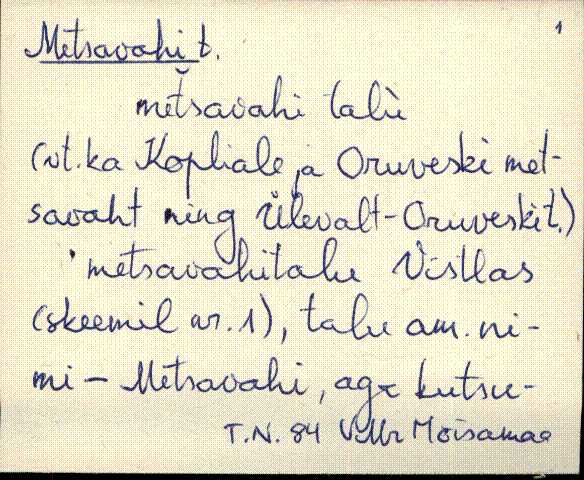 1
Metsavahi t.
metsavahi talu
(vt. ka Kopliale ja Oruveski met-
savaht ning Ülevalt-Oruveski t.)
metsavahitalu Vistlas
(skeemil nr. 1), talu am. ni-
mi – Metsavahi, aga kutsu-
T.N. 84 VMr Mõisamaa